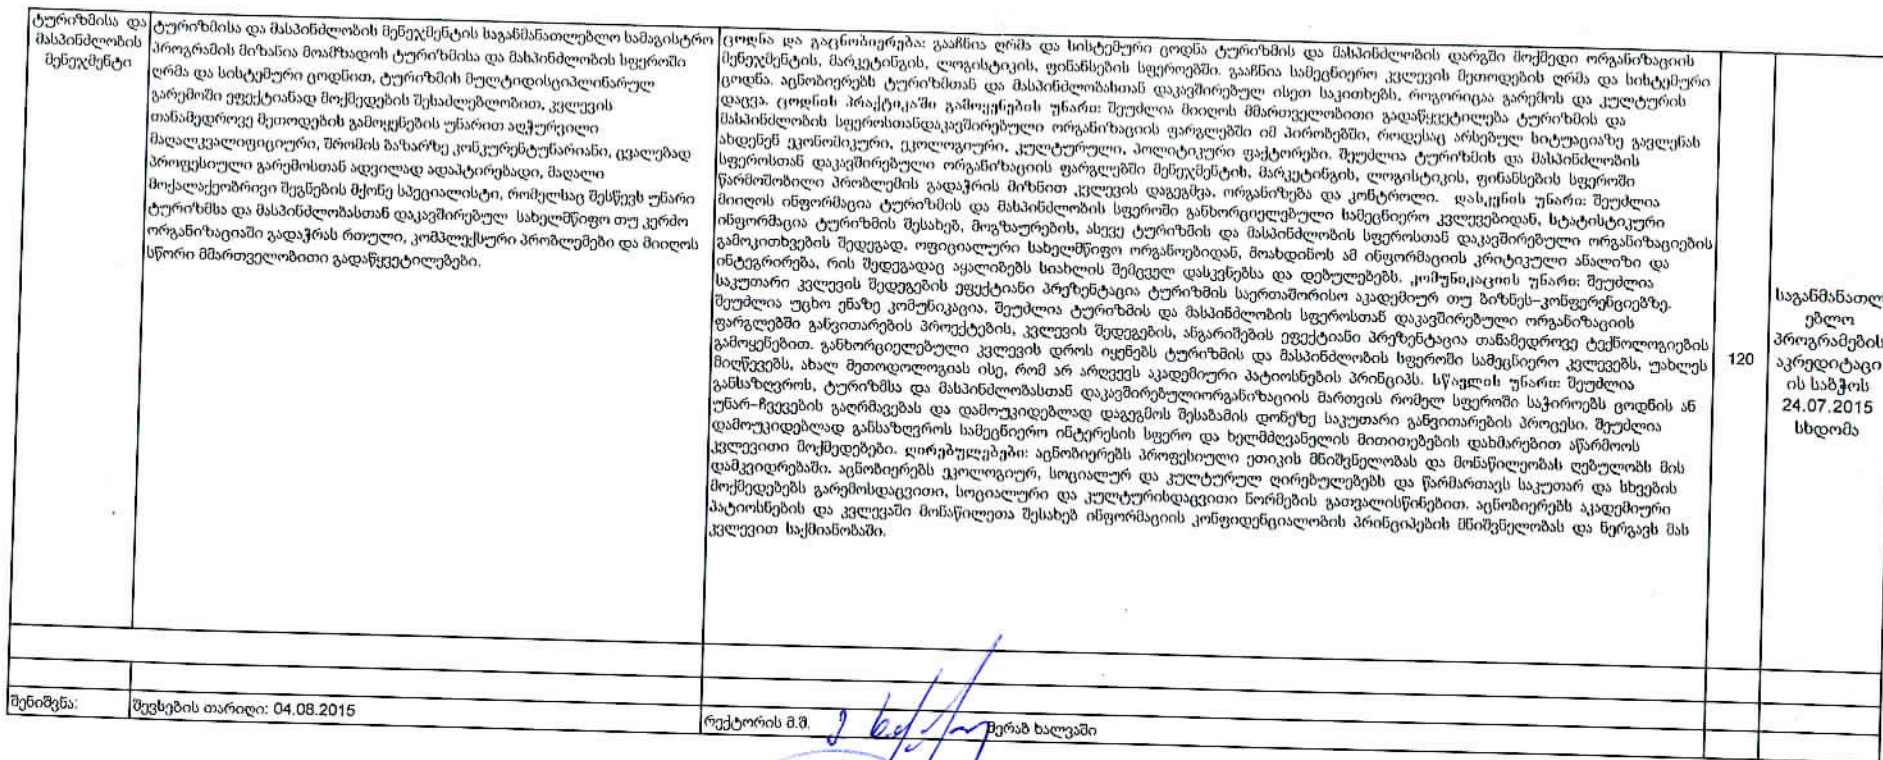 ტურიზმისა და
მასპინძლობის
მენეჯმენტი
ტურიზმისა და მასპინძლობის მენეჯმენტის საგანმანათლებლო სამაგისტრო
პროგრამის მიზანია მოამზადოს ტურიზმისა და მასპინძლობის სფეროში
ღრმა და სისტემური ცოდნით, ტურიზმის მულტიდისციპლინარულ
გარემოში ეფექტიანად მოქმედების შესაძლებლობით, კვლევის
თანამედროვე მეთოდების გამოყენების უნარით აღჭურვილი
მაღალკვალიფიციური, შრომის ბაზარზე კონკურენტუნარიანი, ცვალებად
პროფესიული გარემოსთან ადვილად ადაპტირებადი, მაღალი
მოქალაქეობრივი შეგნების მქონე სპეციალისტი, რომელსაც შესწევს უნარი
ტურიზმსა და მასპინძლობასთან დაკავშირებულ სახელმწიფო თუ კერძო
ორგანიზაციაში გადაჭრას რთული, კომპლექსური პრობლემები და მიიღოს
სწორი მმართველობითი გადაწყვეტილებები.
ცოდნა და გაცნობიერება: გააჩნია ღრმა და სისტემური ცოდნა ტურიზმის და მასპინძლობის დარგში მოქმედი ორგანიზაციის
მენეჯმენტის, მარკეტინგის, ლოგისტიკის, ფინანსების სფეროებში. გააჩნია სამეცნიერო კვლევის მეთოდების ღრმა და სისტემური
ცოდნა. აცნობიერებს ტურიზმთან და მასპინძლობასთან დაკავშირებულ ისეთ საკითხებს, როგორიცაა გარემოს და კულტურის
დაცვა. ცოდნის პრაქტიკაში გამოყენების უნარი: შეუძლია მიიღოს მმართველობითი გადაწყვეტილება ტურიზმის და
მასპინძლობის სფეროსთანდაკავშირებული ორგანიზაციის ფარგლებში იმ პირობებში, როდესაც არსებულ სიტუაციაზე გავლენას
ახდენენ ეკონომიკური, ეკოლოგიური. კულტურული, პოლიტიკური ფაქტორები. შეუძლია ტურიზმის და მასპინძლობის
სფეროსთან დაკავშირებული ორგანიზაციის ფარგლებში მენეჯმენტის, მარკეტინგის, ლოგისტიკის, ფინანსების სფეროში
წარმოშობილი პრობლემის გადაჭრის მიზნით კვლევის დაგეგმვა. ორგანიზება და კონტროლი. დასკვნის უნარი: შეუძლია
მიიღოს ინფორმაცია ტურიზმის და მასპინძლობის სფეროში განხორციელებული სამეცნიერო კვლევებიდან, სტატისტიკური
ინფორმაცია ტურიზმის შესახებ, მოგზაურების, ასევე ტურიზმის და მასპინძლობის სფეროსთან დაკავშირებული ორგანიზაციების
გამოკითხვების შედეგად, ოფიციალური სახელმწიფო ორგანოებიდან, მოახდინოს ამ ინფორმაციის კრიტიკული ანალიზი და
ინტეგრირება, რის შედეგადაც აყალიბებს სიახლის შემცველ დასკვნებსა და დებულებებს. კომუნიკაციის უნარი: შეუძლია
საკუთარი კვლევის შედეგების ეფექტიანი პრეზენტაცია ტურიზმის საერთაშორისო აკადემიურ თუ ბიზნეს-კონფერენციებზე.
შეუძლია უცხო ენაზე კომუნიკაცია. შეუძლია ტურიზმის და მასპინძლობის სფეროსთან დაკავშირებული ორგანიზაციის
ფარგლებში განვითარების პროექტების, კვლევის შედეგების, ანგარიშების ეფექტიანი პრეზენტაცია თანამედროვე ტექნოლოგიების
გამოყენებით. განხორციელებული კვლევის დროს იყენებს ტურიზმის და მასპინძლობის სფეროში სამეცნიერო კვლევებს, უახლეს
მიღწევებს, ახალ მეთოდოლოგიას ისე, რომ არ არღვევს აკადემიური პატიოსნების პრინციპს. სწავლის უნარი: შეუძლია
განსაზღვროს, ტურიზმსა და მასპინძლობასთან დაკავშირებულიორგანიზაციის მართვის რომელ სფეროში საჭიროებს ცოდნის ან
უნარ-ჩვევების გაღრმავებას და დამოუკიდებლად დაგეგმოს შესაბამის დონეზე საკუთარი განვითარების პროცესი. შეუძლია
დამოუკიდებლად განსაზღვროს სამეცნიერო ინტერესის სფერო და ხელმძღვანელის მითითებების დახმარებით აწარმოოს
კვლევითი მოქმედებები. ღირებულებები: აცნობიერებს პროფესიული ეთიკის მნიშვნელობას და მონაწილეობას ღებულობს მის
დამკვიდრებაში. აცნობიერებს ეკოლოგიურ, სოციალურ და კულტურულ ღირებულებებს და წარმართავს საკუთარ და სხვების
მოქმედებებს გარემოსდაცვითი, სოციალური და კულტურისდაცვითი ნორმების გათვალისწინებით. აცნობიერებს აკადემიური
პატიოსნების და კვლევაში მონაწილეთა შესახებ ინფორმაციის კონფიდენციალობის პრინციპების მნიშვნელობას და ნერგავს მას
კვლევით საქმიანობაში.
120
საგანმანათლ
ებლო
პროგრამების
აკრედიტაცი
ის საბჭოს
24.07.2015
სხდომა
შენიშვნა:
შევსების თარიღი: 04.08.2015
რექტორის მ.შ.
მერაბ ხალვაში